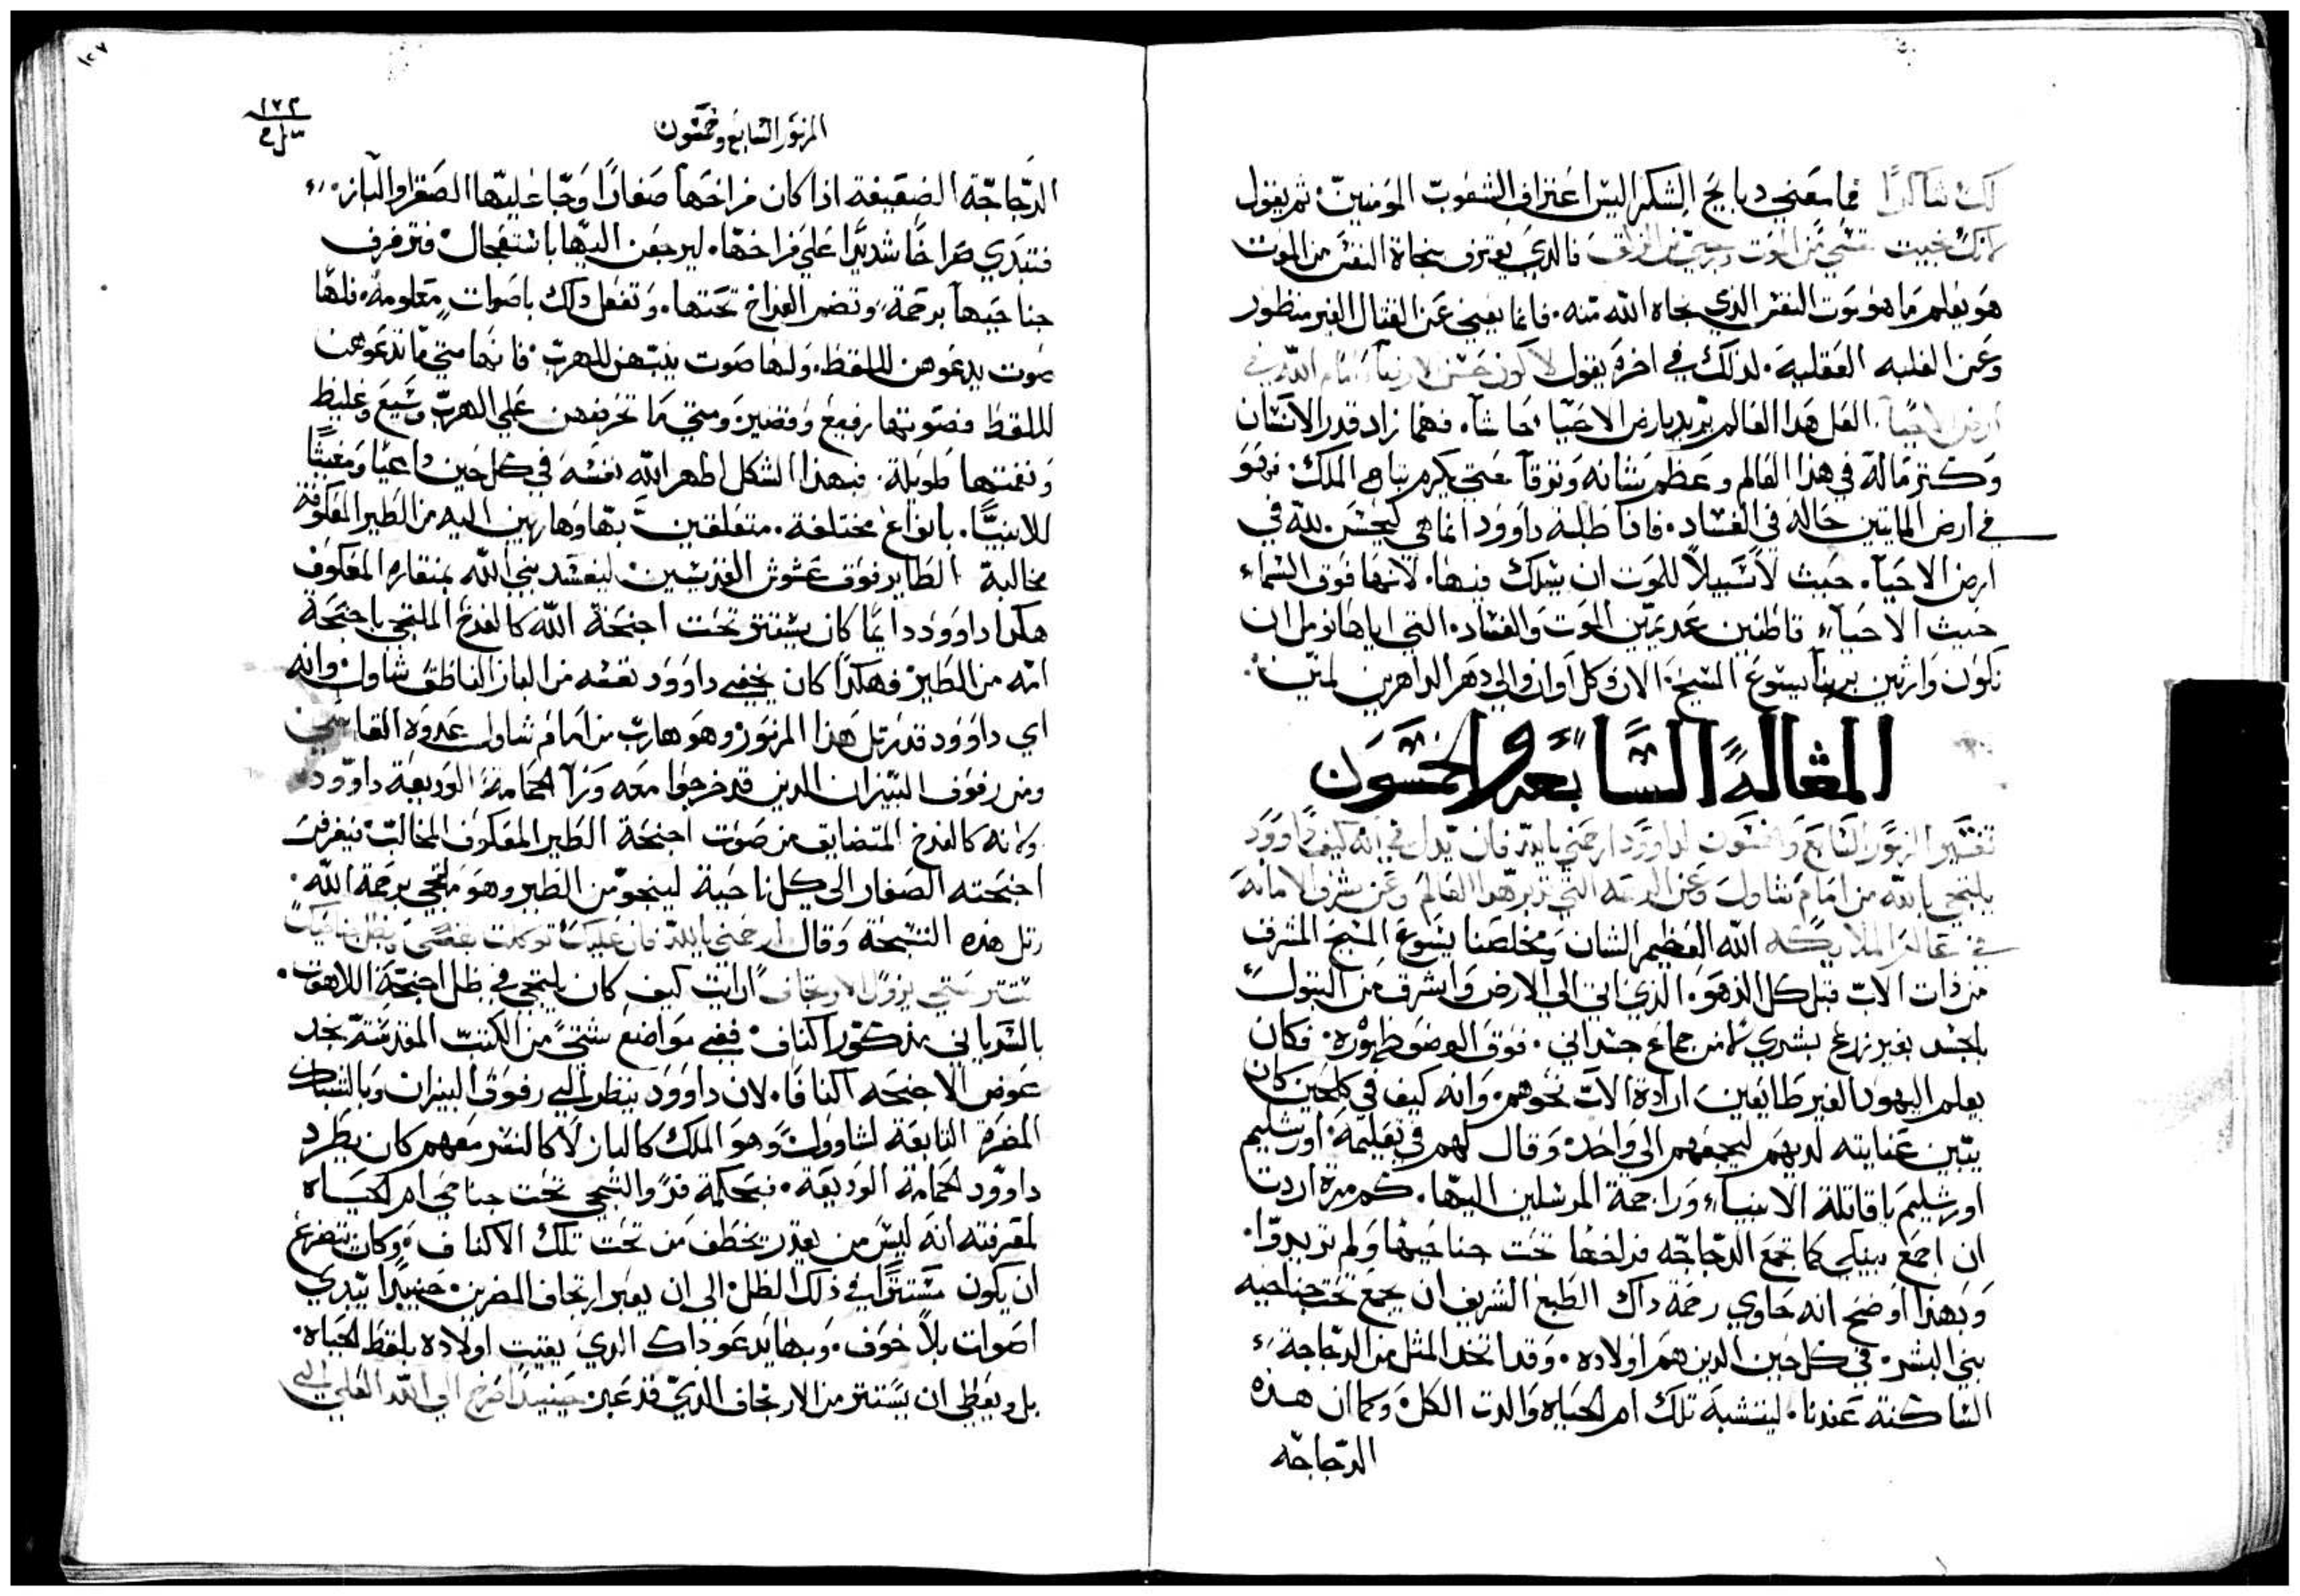 لك شاكرًا فما معني دبايح الشكر اليس اعتراف الشفوت المومنين ثم يقول
لانك نجيت نفسي من الموت ورجلي من الزلق فالدي يعترف بنجاة النفس من الموت
هو يعلم ما هو موت النفس الذي نجاه الله منه. فانما يعني عن القتال الغير منظور
وعن الغلبه العقلية. لذلك في اخره يقول لاكون حسن لارضا امام الله في
ارض الاحيا. العل هذا العالم يريد بارض الاحيا حاشا. فهما زاد قدر الانسان
وكتر ماله في هذا العالم وعظم شانه وترقا حتي يكرم بتاج الملك. فهو
في ارض المايتين حاله في الفساد. فاذا طلبة داوود انما هي ليحسن لله في
ارض الاحيآ. حيث لا سبيلاً للموت ان يسلك فيها. لانها فوق السماء
حيث الاحيآء قاطنين عديمين الموت والفساد. التي اياها نومل ان
نكون وارثين بربنا يسوع المسيح. الان وكل اوان والي دهر الداهرين امين.
المقالة السابعة والخمسون
تفسير المزمور السابع والخمسون لداوود ارحمني يا الله فان يدل في انه كيف داوود
يلتجي بالله من امام شاول وعن الرحمه التي تدبر هذا العالم وعن شرف الامانه
في عالم الملايكه الله العظيم الشان ومخلصنا يسوع المسيح المشرق
من ذات الاب قبل كل الدهور. الذي اتي الي الارض واشرق من البتول
بالجسد بغير زرع بشري لا من جماع جسداني. فوق الوصف ظهوره. فكان
يعلم اليهود الغير طايعين ارادة الاب نحوهم. وانه كيف في كل حين كان
يبين عنايته لديهم ليجمعهم الي واحد. وقال لهم في تعليمه. اورشليم
اورشليم يا قاتلة الانبياء وراجمة المرسلين اليها. كم مرة اردت
ان اجمع بنيكي كما تجمع الدجاجه فراخها تحت جناحيها ولم تريدوا.
وبهذا اوضح انه حاوي رحمة داك الطبع الشريف ان يجمع تحت جناحيه
بني البشر في كل حين الدين هم اولاده. وقد اتخد المثل من الدجاجة
الساكنة عندنا. ليتشبه تلك ام الحياه والدت الكل. وكما ان هذه
الدجاجه
١٢٧
١٧٢
المزمور السابع وخمسون
الدجاجة الضعيفة اذا كان فراخها صغارًا وجا عليها الصقر او الباز
فتبدي صراخًا شديدًا علي فراخها. ليرجعن اليها باستعجال فترفرف
جناحيها برحمة. وتضم الفراخ تحتها. وتفعل ذلك باصوات معلومه. فلها
صوت يدعوهن للقط. ولها صوت ينبههن للهرب. فانها متي ما تدعوهن
للقط فصوتها رفيع وقصير ومتي ما تحرضهن علي الهرب وسيع وغليظ
ونغمتها طويلة. فبهذا الشكل اظهر الله نفسه في كل حين داعيًا ومغيثًا
للانبيا. بانواع مختلفة. متعلقين بها وهاربين اليه من الطير المعكوفة
مخالبة الطاير فوق عشوش القديسين ليفسد بني الله بمنقاره المعكوف
هكذا داوود دايمًا كان يستتر تحت اجنحة الله كالفرخ الملتجي باجنحة
امه من الطير. فهكذا كان يخفي داوود نفسه من الباز الخاطف شاول وانه
اي داوود قد رتل هذا المزمور وهو هارب من امام شاول عدوه القاسي
ومن رفوف النيران الدين قد خرجوا معه ورآ الحمامة الوديعة داوود
ولانه كالفرخ المتضايق من صوت اجنحة الطير المعكوف المخالب. فيفرفر
اجنحته الصغار الي كل ناحية لينجو من الطير وهو ملتجي برحمة الله.
رتل هذه التسبحة وقال ارحمني يا الله فان عليك توكلت نفسي وبظل جناحيك
تستر متي يزول الارتجاف ارايت كيف كان يلتجي في ظل اجنحة اللاهوت.
بالسرياني مذكور اكناف. ففي مواضع شتي من الكتب المقدسة نجد
عوض الاجنحه اكنافا. لان داوود ينظر الي رفوف البيزان وبالشباك
المضرة التابعة لشاوول. وهو الملك كالباز لا كالنسر معهم كان يطرد
داوود الحمامة الوديعة. فبحكمة فر والتجي تحت جناحي ام الحياه
لمعرفته انه ليس من يقدر يخطف من تحت تلك الاكناف. وكان يتضرع
ان يكون مستترًا في ذلك الظل. الي ان يعبر ارتجاف المضرين. حينيدًا يبدي
اصوات بلا خوف. وبها يدعو داك الدي يعتيت اولاده بلقط الحياه.
بل ويعطي ان يستتر من الارتجاف الدي قد عبر. حينيدًا اصرخ الي الله العلي الي